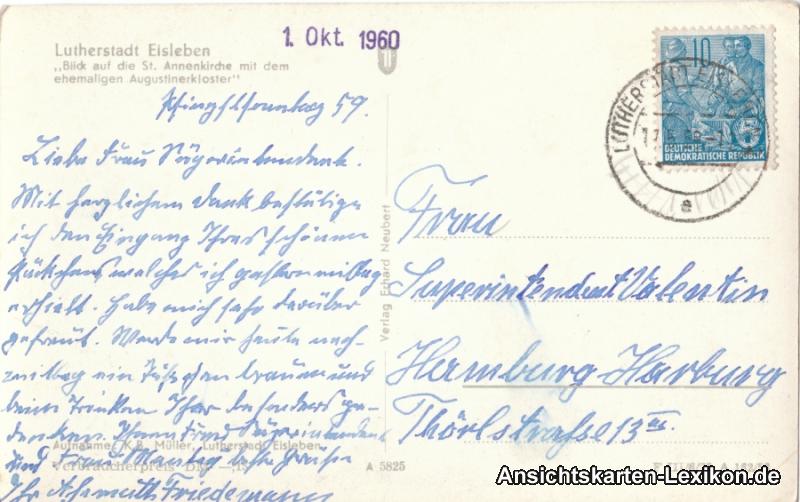 Lutherstadt Eisleben
„Blick auf die St. Annenkirche mit dem
ehemaligen Augustinerkloster"
1. Okt. 1960
Pfingstsonntag 59.
Liebe Frau
Mit herzlichem Dank bestätige
ich den Eingang Ihres schönen
Päckchens welches ich gestern mittag
erhielt. Habe mich sehr darüber
gefreut. Werde mir heute nach-
mittag ein Täßchen brauen und
beim Trinken Ihrer besonders ge-
denken. Ihnen und
und Frau
Ihr Friedemann
Aufnahme: K.B. Müller, Lutherstadt Eisleben
Verbraucherpreis DM
A 5825
Verlag Erhard Neubert
10
5
DEUTSCHE
DEMOKRATISCHE REPUBLIK
LUTHERSTADT EISLEBEN
a
Frau
Superintendent Valentin
Hamburg Harburg
Thörlstrasse 13
Ansichtskarten-Lexikon.de